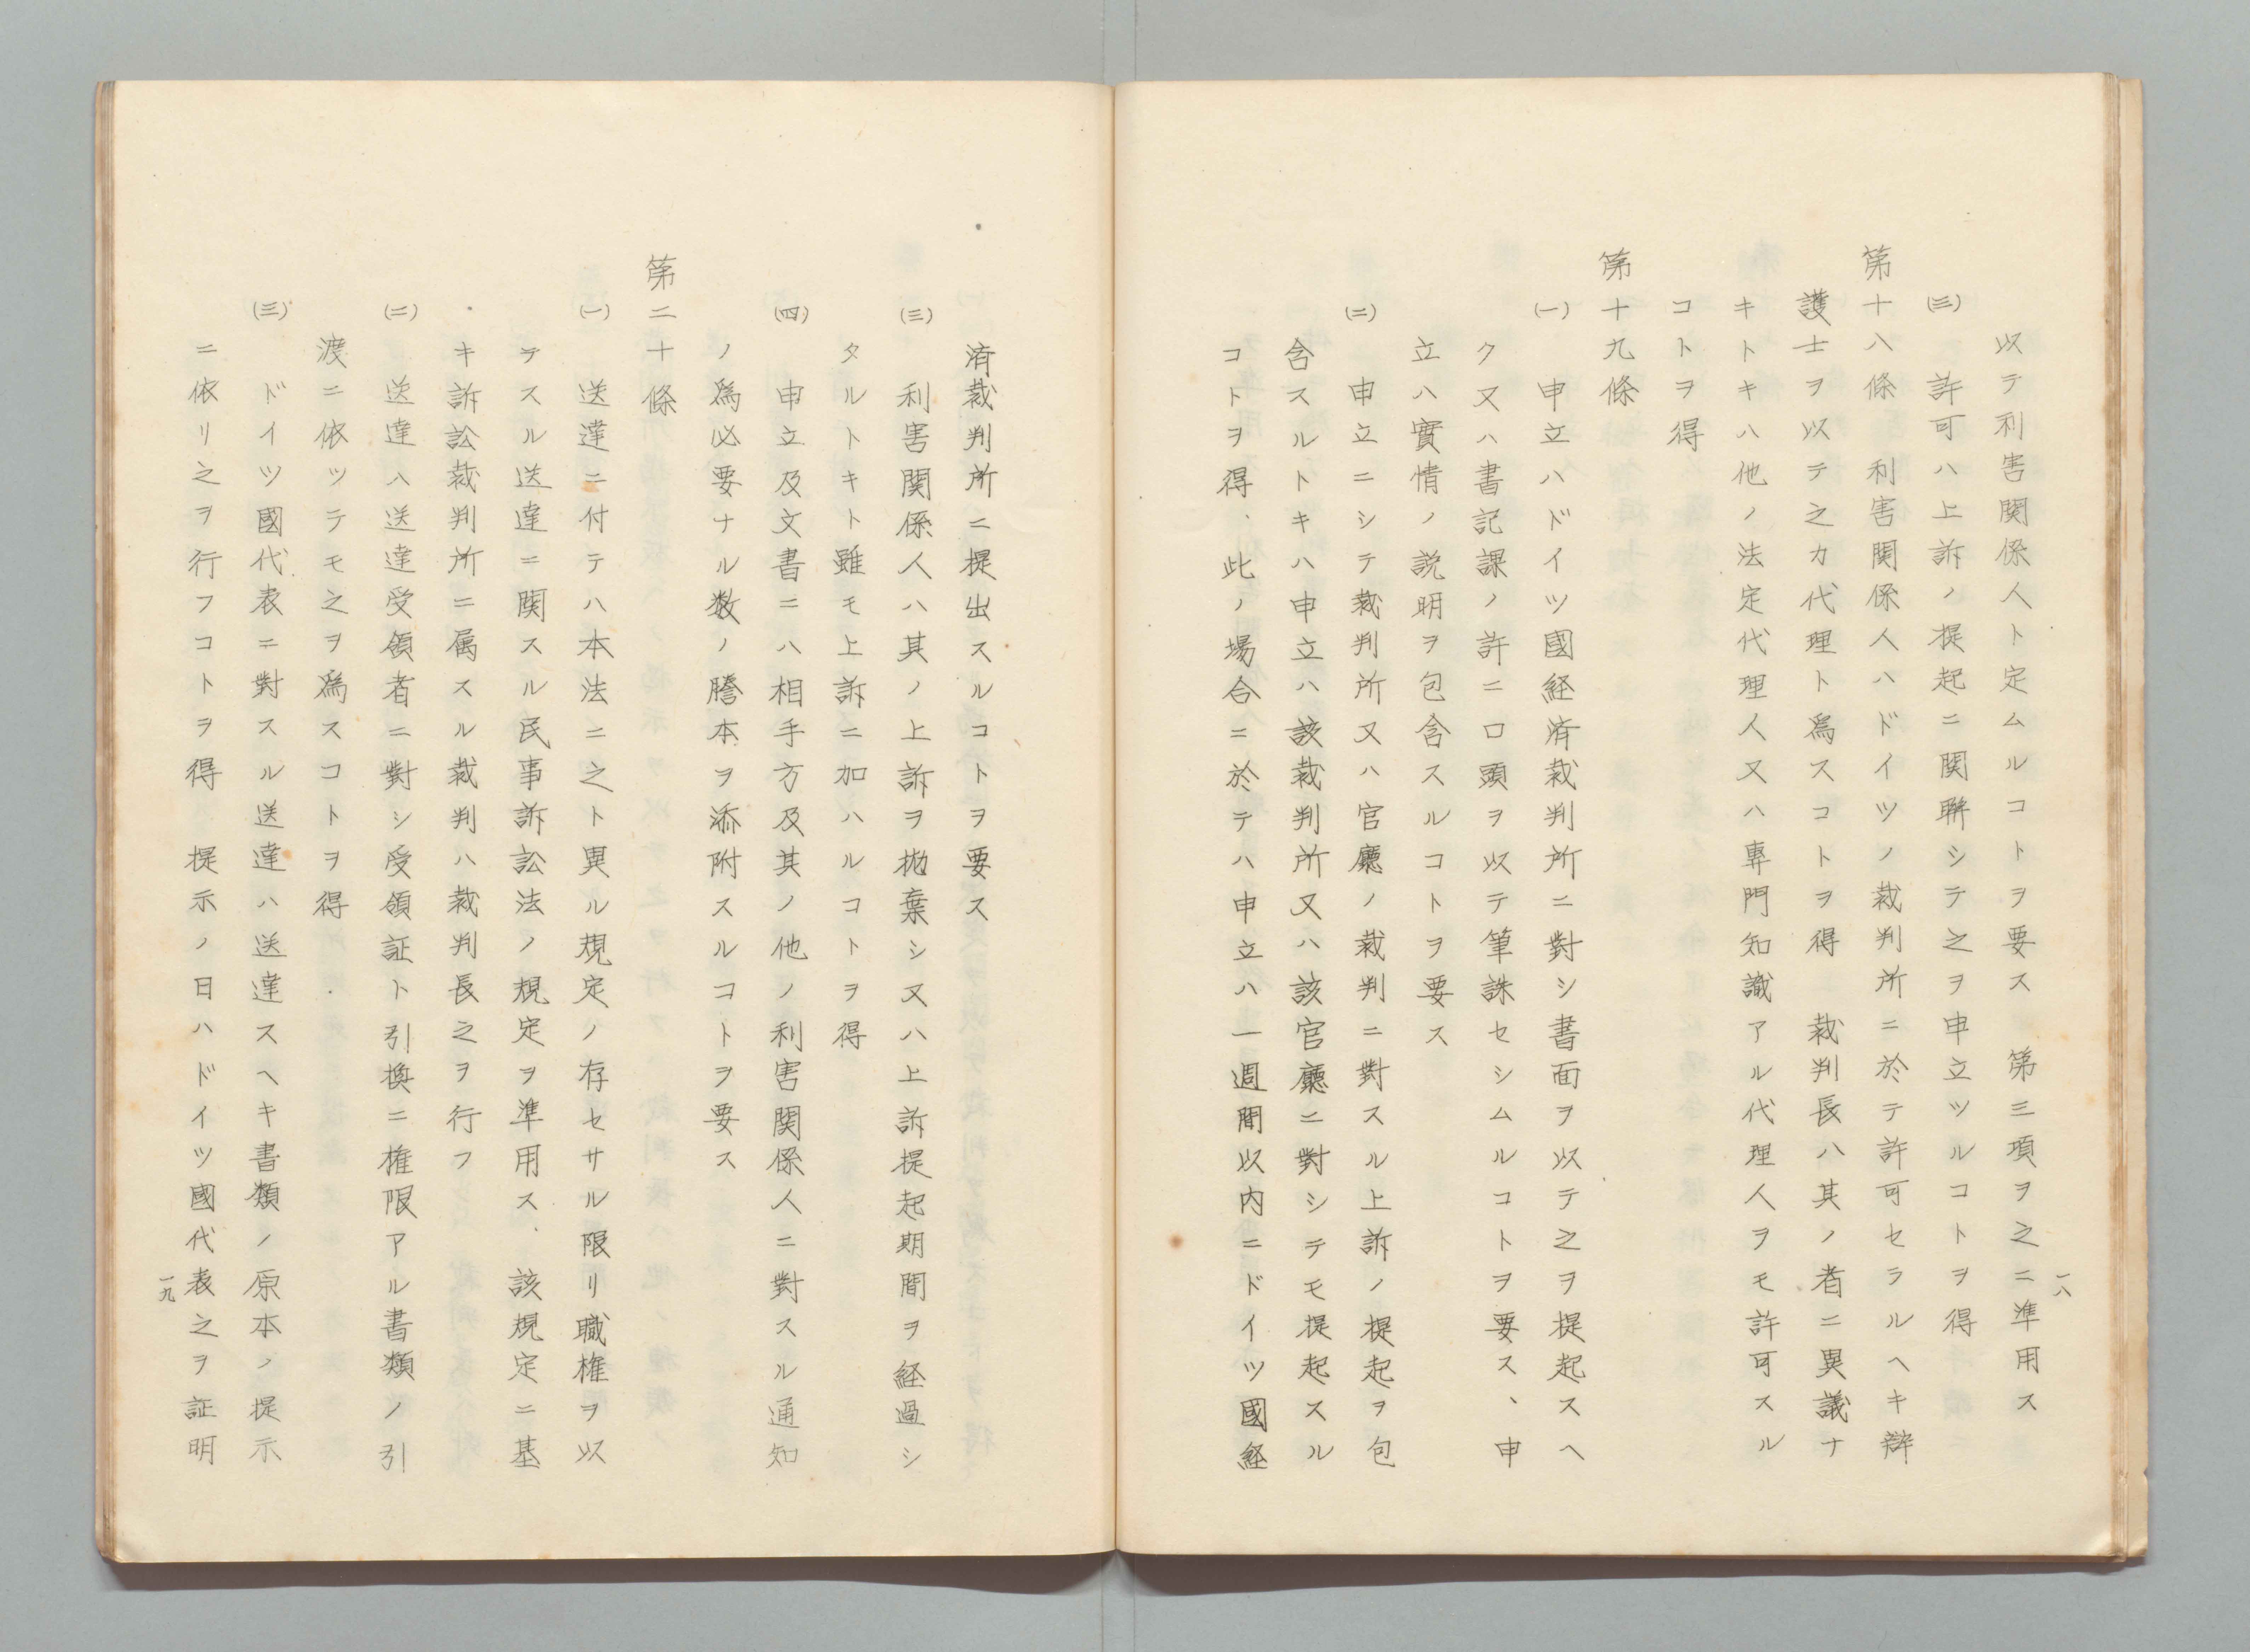 以テ利害関係人ト定ムルコトヲ要ス　第三項ヲ之ニ準用ス
㈢　許可ハ上訴ノ提起ニ関聯シテ之ヲ申立ツルコトヲ得
第十八條　利害関係人ハドイツノ裁判所ニ於テ許可セラルヘキ辯
護士ヲ以テ之カ代理ト爲スコトヲ得　裁判長ハ其ノ者ニ異議ナ
キトキハ他ノ法定代理人又ハ專門知識アル代理人ヲモ許可スル
コトヲ得
第十九條
㈠　申立ハドイツ國経済裁判所ニ對シ書面ヲ以テ之ヲ提起スヘ
ク又ハ書記課ノ許ニ口頭ヲ以テ筆誅セシムルコトヲ要ス、申
立ハ實情ノ説明ヲ包含スルコトヲ要ス
㈡　申立ニシテ裁判所又ハ官廳ノ裁判ニ對スル上訴ノ提起ヲ包
含スルトキハ申立ハ該裁判所又ハ該官廳ニ對シテモ提起スル
コトヲ得、此ノ場合ニ於テハ申立ハ一週間以内ニドイツ國経
一八
済裁判所ニ提出スルコトヲ要ス
㈢　利害関係人ハ其ノ上訴ヲ抛棄シ又ハ上訴提起期間ヲ経過シ
タルトキト雖モ上訴ニ加ハルコトヲ得
㈣　申立及文書ニハ相手方及其ノ他ノ利害関係人ニ對スル通知
ノ爲必要ナル数ノ謄本ヲ添附スルコトヲ要ス
第二十條
㈠　送達ニ付テハ本法ニ之ト異ル規定ノ存セサル限リ職権ヲ以
テスル送達ニ関スル民事訴訟法ノ規定ヲ準用ス、該規定ニ基
キ訴訟裁判所ニ属スル裁判ハ裁判長之ヲ行フ
㈡　送達ハ送達受領者ニ對シ受領証ト引換ニ権限アル書類ノ引
渡ニ依ツテモ之ヲ爲スコトヲ得
㈢　ドイツ國代表ニ對スル送達ハ送達スヘキ書類ノ原本ノ提示
ニ依リ之ヲ行フコトヲ得　提示ノ日ハドイツ國代表之ヲ証明
一九